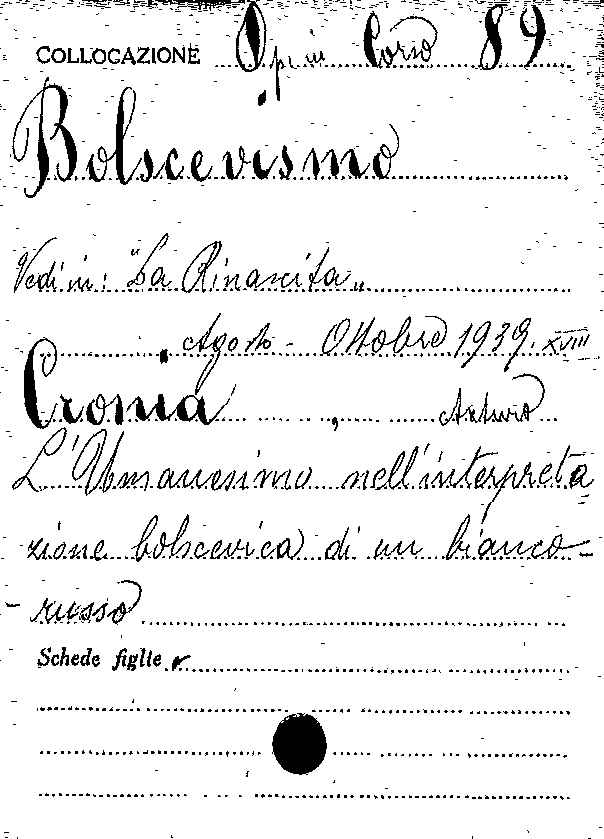 COLLOCAZIONE Op. in Corso 89
Bolscevismo
Vedi in: "La Rinascita„
Agosto - Ottobre 1939. XVIII
Cronia, Arturo
L'Umanesimo nell'interpreta=
zione bolscevica di un bianco-
- russo
Schede figlie